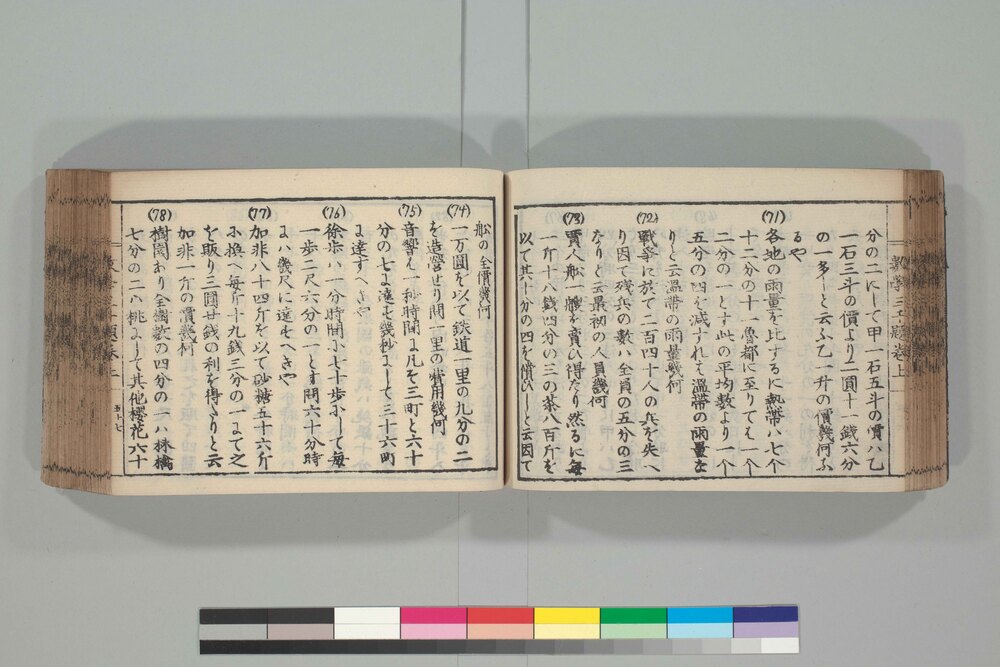 分の二にして甲一石五斗の價ハ乙
一石三斗の價より二圓十一錢六分
の一多しと云ふ乙一升の價幾何ふ
るや
(71)
各地の雨量を比するに熱帯ハ七个
十二分の十一魯都に至りてハ一个
二分の一とす此の平均數より一个
五分の四を減ずれハ温帯の雨量な
りと云温帯の雨量幾何
(72)
戰爭に於て二百四十人の兵を失へ
り因て殘兵の數ハ全員の五分の三
なりと云最初の人員幾何
(73)
賈人舩一艘を賣ひ得たり然るに毎
一斤十八錢四分の三の茶八百斤を
以て其十分の四を償ひしと云因て
舩の全價幾何
(74)
一万圓を以て鉄道一里の九分の二
を造營せり問一里の費用幾何
(75)
音響ハ一秒時間に凡そ三町と六十
分の七に達す幾秒にして三十六町
に達すへきや
(76)
徐歩ハ一分時間小七十歩小して毎
一歩二尺六分の一とす問六十分時
にハ幾尺に達すへきや
(77)
加非八十四斤を以て砂糖五十六斤
小換へ毎斤十九錢三分の一にて之
を販り三圓廿錢の利を得たりと云
加非一斤の價幾何
(78)
樹園あり全圃數の四分の一ハ林檎
七分の二ハ桃にして其他櫻花六十
數學三千題 卷上
五十七